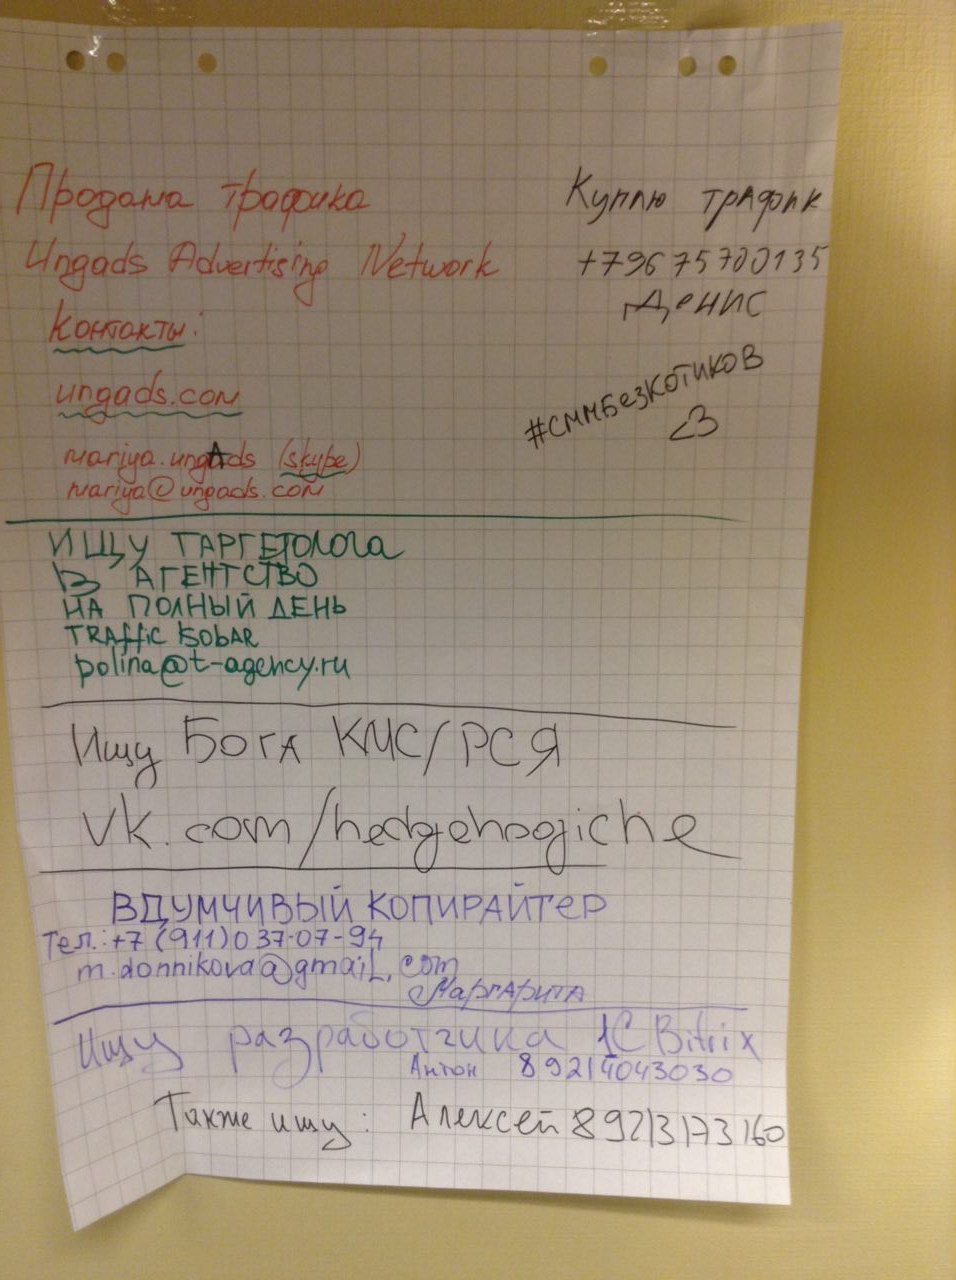 Продажа трафика
Ungads Advertising Network
Контакты:
ungads.com
mariya.ungAds (skype)
mariya@ungads.com
Куплю трафик
+79675700135
Денис
#СММБезКотиков
<3
ИЩУ ТАРГЕТОЛОГА
В АГЕНТСТВО
НА ПОЛНЫЙ ДЕНЬ
TRAffic ISOBAR
polina@t-agency.ru
Ищу Бога КМС/РСЯ
vk.com/hedgehogiche
ВДУМЧИВЫЙ КОПИРАЙТЕР
Тел.: +7 (911) 037-07-94
m.donnikova@gmail.com
Маргарита
Ищу разработчика 1С Bitrix
Антон 89214043030
Также ищу: Алексей 89213173160